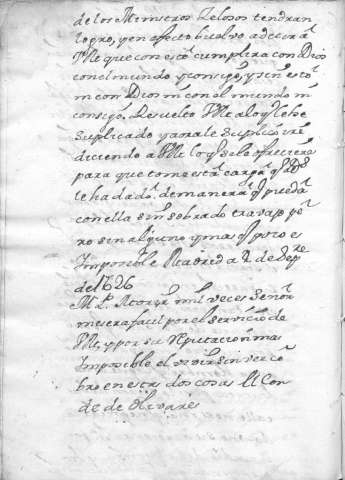 de los Ministros Zelosos tendran
logro, y en efecto buelvo a decir a
VMg que con esto cumplira con Dios
con el mundo y consigo, y sin esto
ni con Dios ni con el mundo ni
consigo, Resuelto VMg a lo q le he
suplicado y aora le suplico ire
diciendo a VMg lo q se le ofreciere
para que tome esta carga q Ds
le ha dado de manera q pueda
con ella sin sobrado travajo pe
ro sin alguno y mas q poco es
Imposible Madrid a 4 de
de 1626
mil veces Señor
me sera facil por el servicio de
VMg y por su Reputacion mas
Imposible el vivir sin ver co
bro en estas dos cosas El Con
de de Olivares